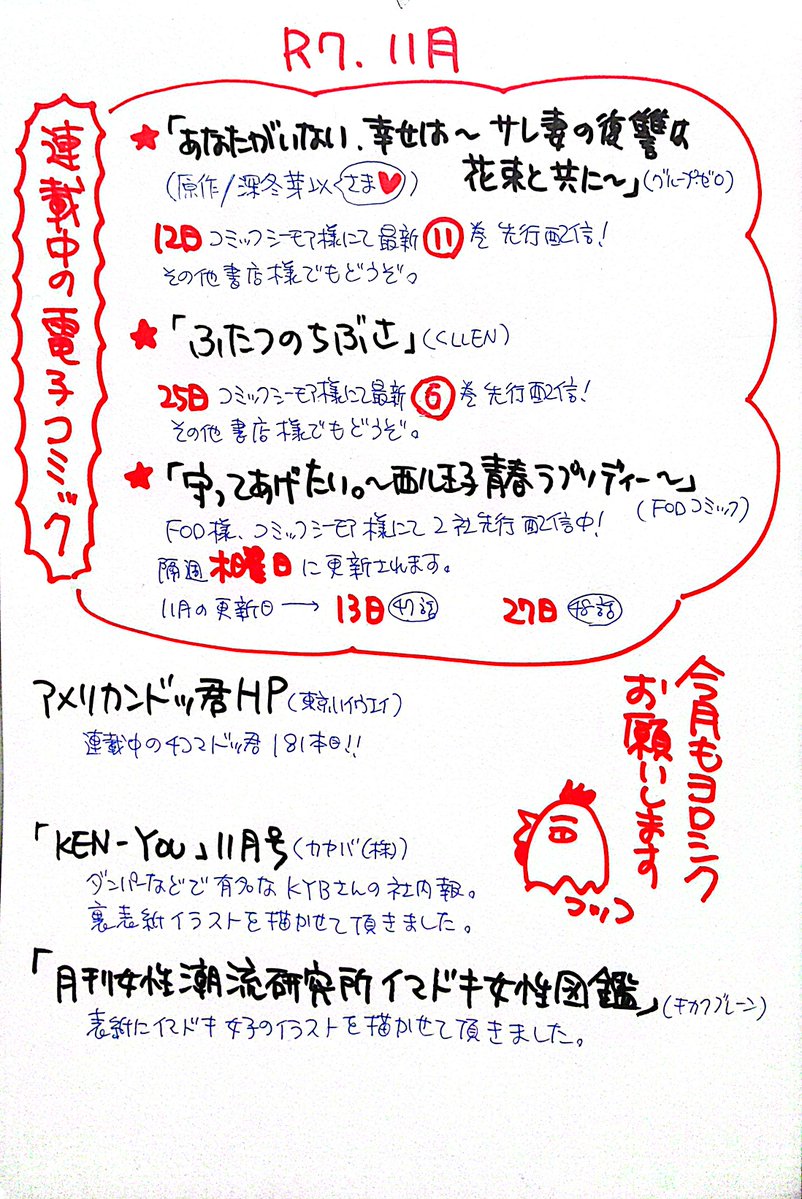 R7. 11月
連載中の電子コミック
★「あなたがいない、幸せは〜サレ妻の復讐は
花束と共に〜」(グループ・ゼロ)
(原作/深冬芽以さま♥)
12日 コミックシーモア様にて最新⑪巻 先行配信!
その他書店様でもどうぞ。
★「ふたつのちぶさ」(CLLEN)
25日 コミックシーモア様にて最新⑥巻 先行配信!
その他書店様でもどうぞ。
★「守ってあげたい。〜西八王子青春ラプソディー〜」
(FODコミック)
FOD様、コミックシーモア様にて2社先行配信中!
隔週木曜日に更新されます。
11月の更新日→ 13日 47話 27日 48話
今月もヨロシク
お願いします
コッコ
アメリカンドッ君HP(東京ハイウエイ)
連載中の4コマドッ君181本目!!
「KEN-YOU」11月号(カヤバ(株))
ダンパーなどで有名なKYBさんの社内報。
裏表紙イラストを描かせて頂きました。
「月刊女性潮流研究所イマドキ女性図鑑」(チカラブレーン)
表紙にイマドキ女子のイラストを描かせて頂きました。